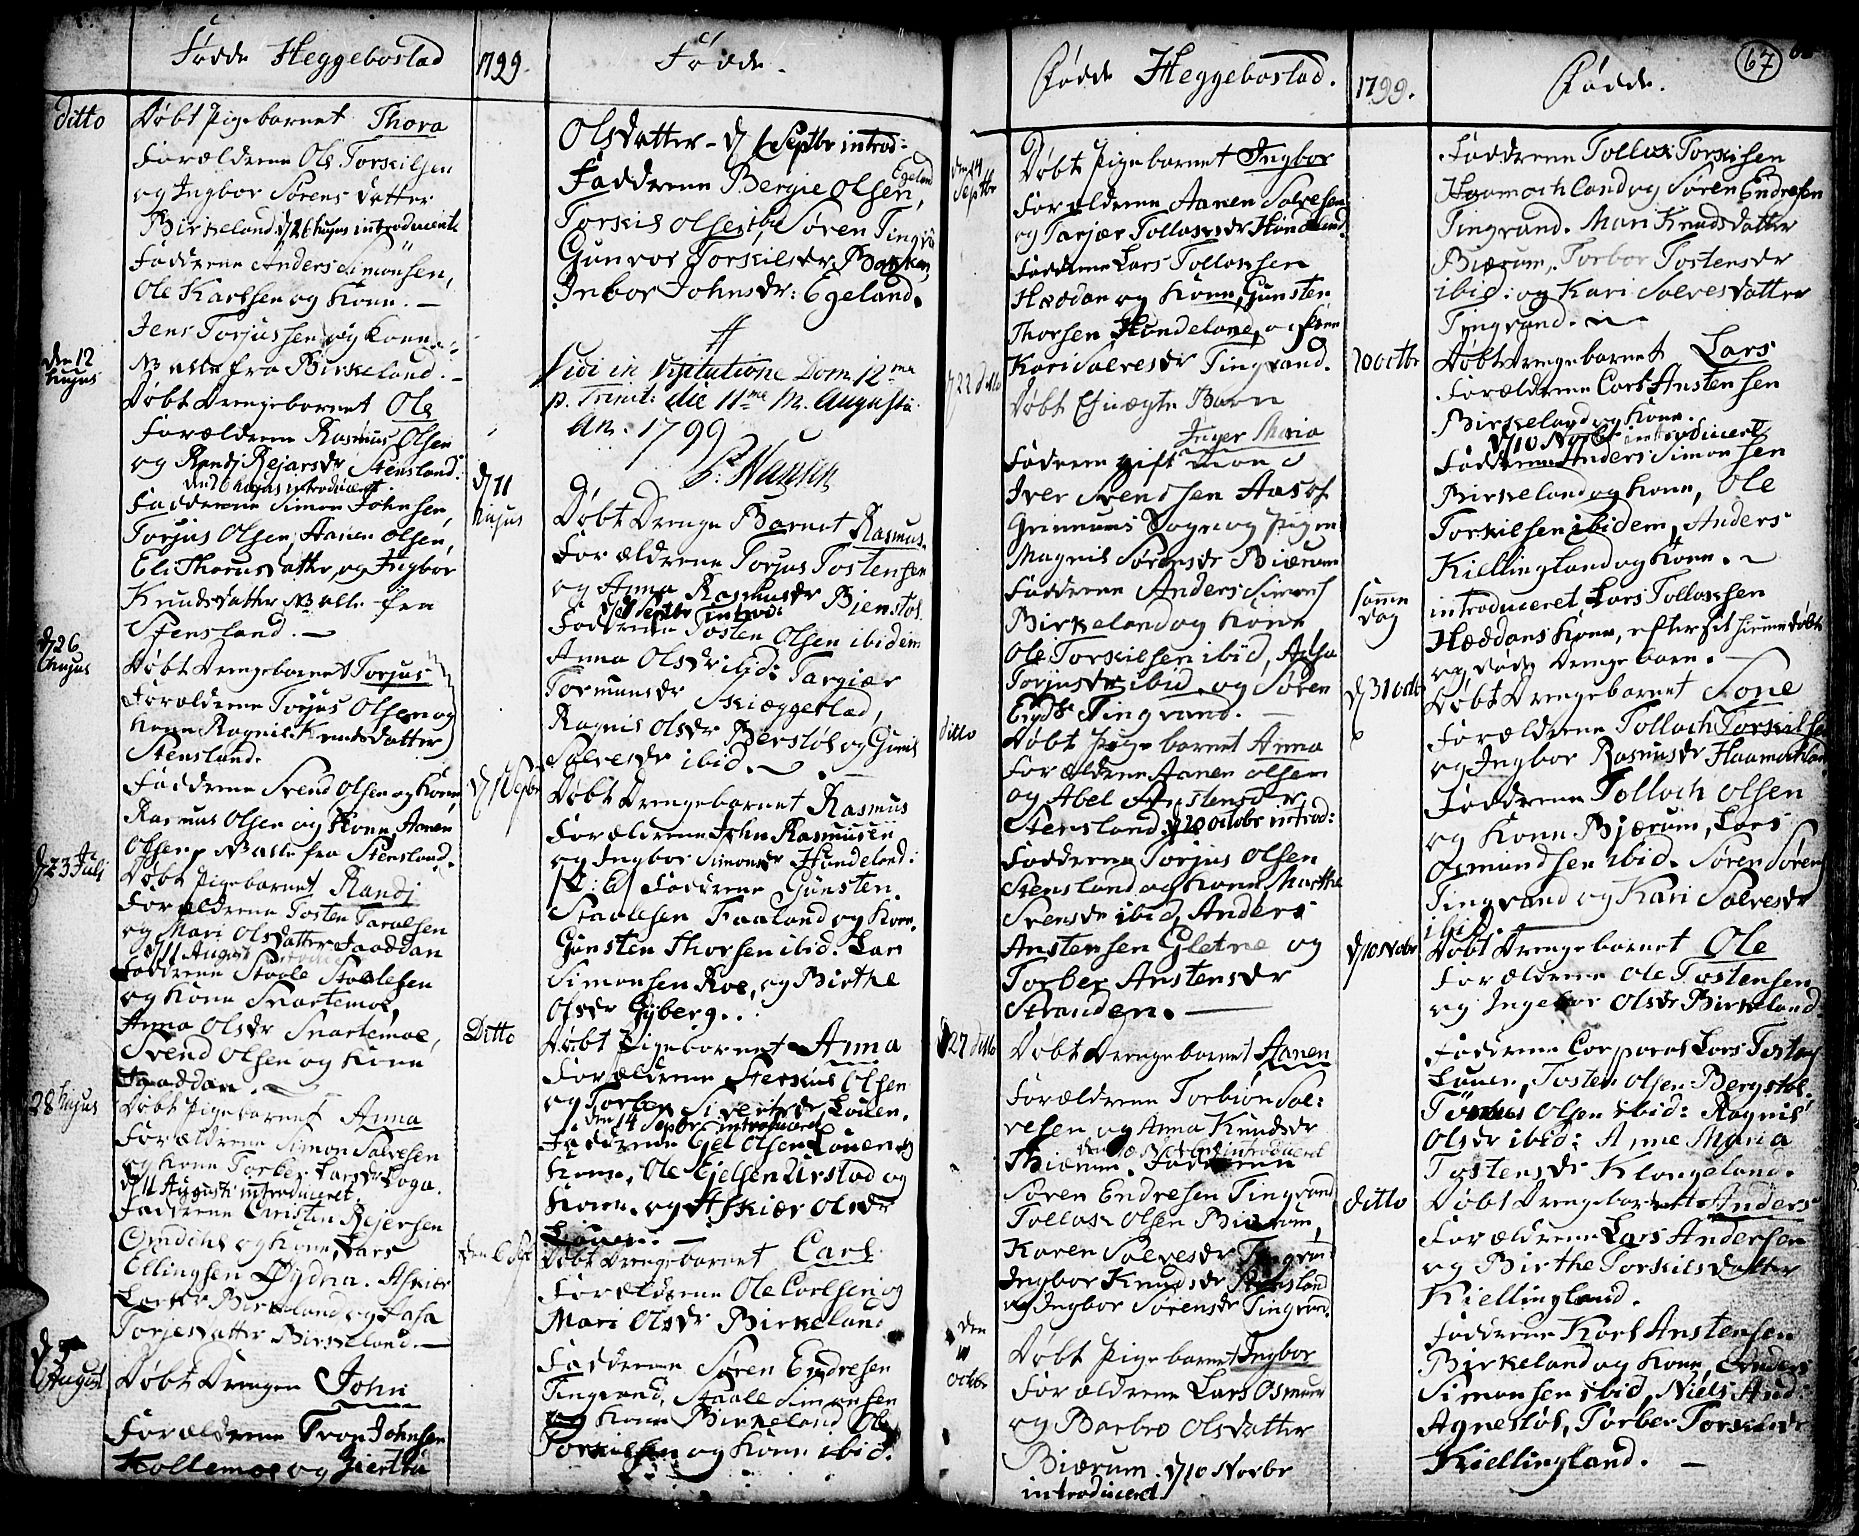 Fødde Heggebostad
1799.
ditto
Døbt Pigebarnet Thora
Forældrene Ole Torkilsen
og Ingbor Sørens datter
Birkeland d 26 hujus introduceret
Faddrene Anders Simonsen,
Ole Karlsen og Kone. —
Jens Torjussen og Kone
NB alle fra Birkeland. —
den 12 hujus
Døbt Drengebarnet Ole
Forældrene Rasmus Olsen
og Randj Rejarsdr Stensland.
den 26 hujus introduceret
Faddrene Simon Johnsen,
Torjus Olsen, Aanen Olsen,
Eli Thorusdatter, og Ingbor
Knudsdatter NB alle fra
Stensland. —
d 26 hujus
Døbt Drengebarnet Torjus
Forældrene Torjus Olsen og
Kone Ragnil Knudsdatter
Stensland.
Faddrene Svend Olsen og Kone,
Rasmus Olsen og Kone, Aanen
Olsen, NB alle fra Stensland.
d 23 Juli
Døbt Pigebarnet Randj
Forældrene Tosten Taralsen
og Mari Olsdatter Faaddan
d 11 August
Faddrene Staale Staalesen
og Kone Snartemoe,
Anna Olsdr Snartemoe,
Svend Olsen og Kone
Faaddan. —
28 hujus
Døbt Pigebarnet Anna
Forældrene Simon Salvesen
og Kone Torber Larsdr Loga.
d 11 Augusti introduceret
Faddrene Christen Rejersen
og Kone, Lars
Ellingsen Øydna. Askier
Birkeland og Aasa
Torjesdatter Birkeland. —
d August
Døbt Drengen John
Forældrene Tron Johnsen
Kollemoe og Giertru
Fødde.
Olsdatter — d 1 Septbr introd:
Faddrene Bergie Olsen, Egeland
Torkil Olsen ibid, Søren Tingv:
Gunvor Torkilsdr Bakken,
Inbor Johnsdr: Egeland.
Vidi in Visitatione Dom. 12me
p. Trinit: die 11me M. Augusti
An: 1799
P. Hansen
d 11 hujus
Døbt Drenge Barnet Rasmus
Forældrene Torjus Tostensen
og Anna Rasmusdr Bienstøl
d 8 Septbr introd:
Faddrene Tosten Olsen ibidem
Anna Olsdr ibid: Targiær
Tormunsdr Skiæggestad,
Ragnil Olsdr Berstøl og Gunil
Salvesdr ibid. —
d 1 Septbr
Døbt Drengebarnet Rasmus
Forældrene John Rasmusen
og Ingbor Simonsdr Hundeland.
Faddrene Gunsten
Staalesen Faaland og Kone.
Gunsten Thorsen ibid. Lars
Simonsen Roe, og Birthe
Olsdr Gyberg. .
Ditto
Døbt Pigebarnet Anna
Forældrene Sterkiel Olsen
og Torber Siversdr Louen.
den 14 Septbr introduceret
Faddrene Ejel Olsen Louen og
Kone, Ole Ejelsen Urstad og
Kone, og Askiær Olsdr
Louen. —
den 6 Sept
Døbt Drengebarnet Carl
Forældrene Ole Carlsen og
Mari Olsdr Birkeland
Faddrene Søren Endresen
Tingvand, Staale Simonsen
og Kone Birkeland Ole
Torkilsen og Kone ibid.
Fødde Heggebostad.
1799.
den 14 Septbr
Døbt Pigebarnet Ingbor
Forældrene Aanen Salvesen
og Tarjær Tollaksdr Hundeland.
Faddrene Lars Tollaksen
Hæddan og Kone, Gunsten
Thorsen Hundeland, og
Kari Salvesdr Tingvand.
d 22 ditto
Døbt Uægte Barn
Inger Maria
Fadren gift Mand
Iver Svendsen Aas af
Grinnums Sogn og Pigen
Magnil Sørensdr Biærum
Faddrene Anders Simons
Birkeland og Kone
Ole Torkilsen ibid, Aasa
Torjusdr ibid og Søren
Endr Tingvand. —
ditto
Døbt Pigebarnet Anna
Forældrene Aanen Olsen
og Abel Anstensdr
Stensland. d 20 Octobr introd:
Faddrene Torjus Olsen
Stensland og Kone, Marthe
Svensdr ibid, Anders
Anstensen Gletne og
Torber Anstensdr
Stranden. —
d 27 ditto
Døbt Drengebarnet Aanen
Forældrene Torbiøn Sal:
vesen og Anna Knudsdr
den 10 Novbr introduceret
Thiærum. Faddrene
Søren Endresen Tingvand
Tollak Olsen Biærum,
Karen Salvesdr Tingvan:
Ingbor Knudsdr Stensland
og Ingbor Sørensdr Tingvand.
den Octbr
Døbt Pigebarnet Ingbor
Forældrene Lars Osmun
og Barbro Olsdatter
Biærum. d 10 Novbr
introduceret
Fødde.
67
Faddrene Tollak Torkilsen
Haamarkland og Søren Endresen
Tingvand. Mari Knudsdatter
Biærum, Torbor Tostensdr
ibid: og Kari Salvesdatter
Tingvand.
20 Octbr
Døbt Drengebarnet Lars
Forældrene Carl Anstensen
Birkeland og Kone.
d 10 Novbr introduceret
Faddrene Anders Simonsen
Birkeland og Kone, Ole
Torkilsen ibidem, Anders
Kiellingland og Kone. —
samme dag
introduceret Lars Tollaksen
Hæddans Kone, efter sit hiemmedøbt
og døde Drengebarn. —
d 31 Octb
Døbt Drengebarnet Lone
Forældrene Tollach Torkilsen
og Ingbor Rasmusdr Haamarkland.
Faddrene Tolloch Olsen
og Kone Bjærum, Lars
Osmundsen ibid. Søren Sørens
Tingvand og Kari Salvesdr
ibid.
d 10 Novbr
Døbt Drengebarnet Ole
Forældrene Ole Tostensen
og Ingebor Olsdr Birkeland.
Faddrene Corporal Lars Tostens
Louen, Tosten Olsen Bergstøl.
Tønnes Olsen ibid: Ragnil
Olsdr ibid: Anne Maria
Tostensdr Klongeland.
ditto
Døbt Drengebarnet Anders
Forældrene Lars Andersen
og Birthe Torkilsdatter
Kiellingland.
Faddrene Karl Anstensen
Birkeland og Kone, Anders
Simonsen ibid, Niels And
Agnestøl, Torber Torkilsdr
Kiellingland. —